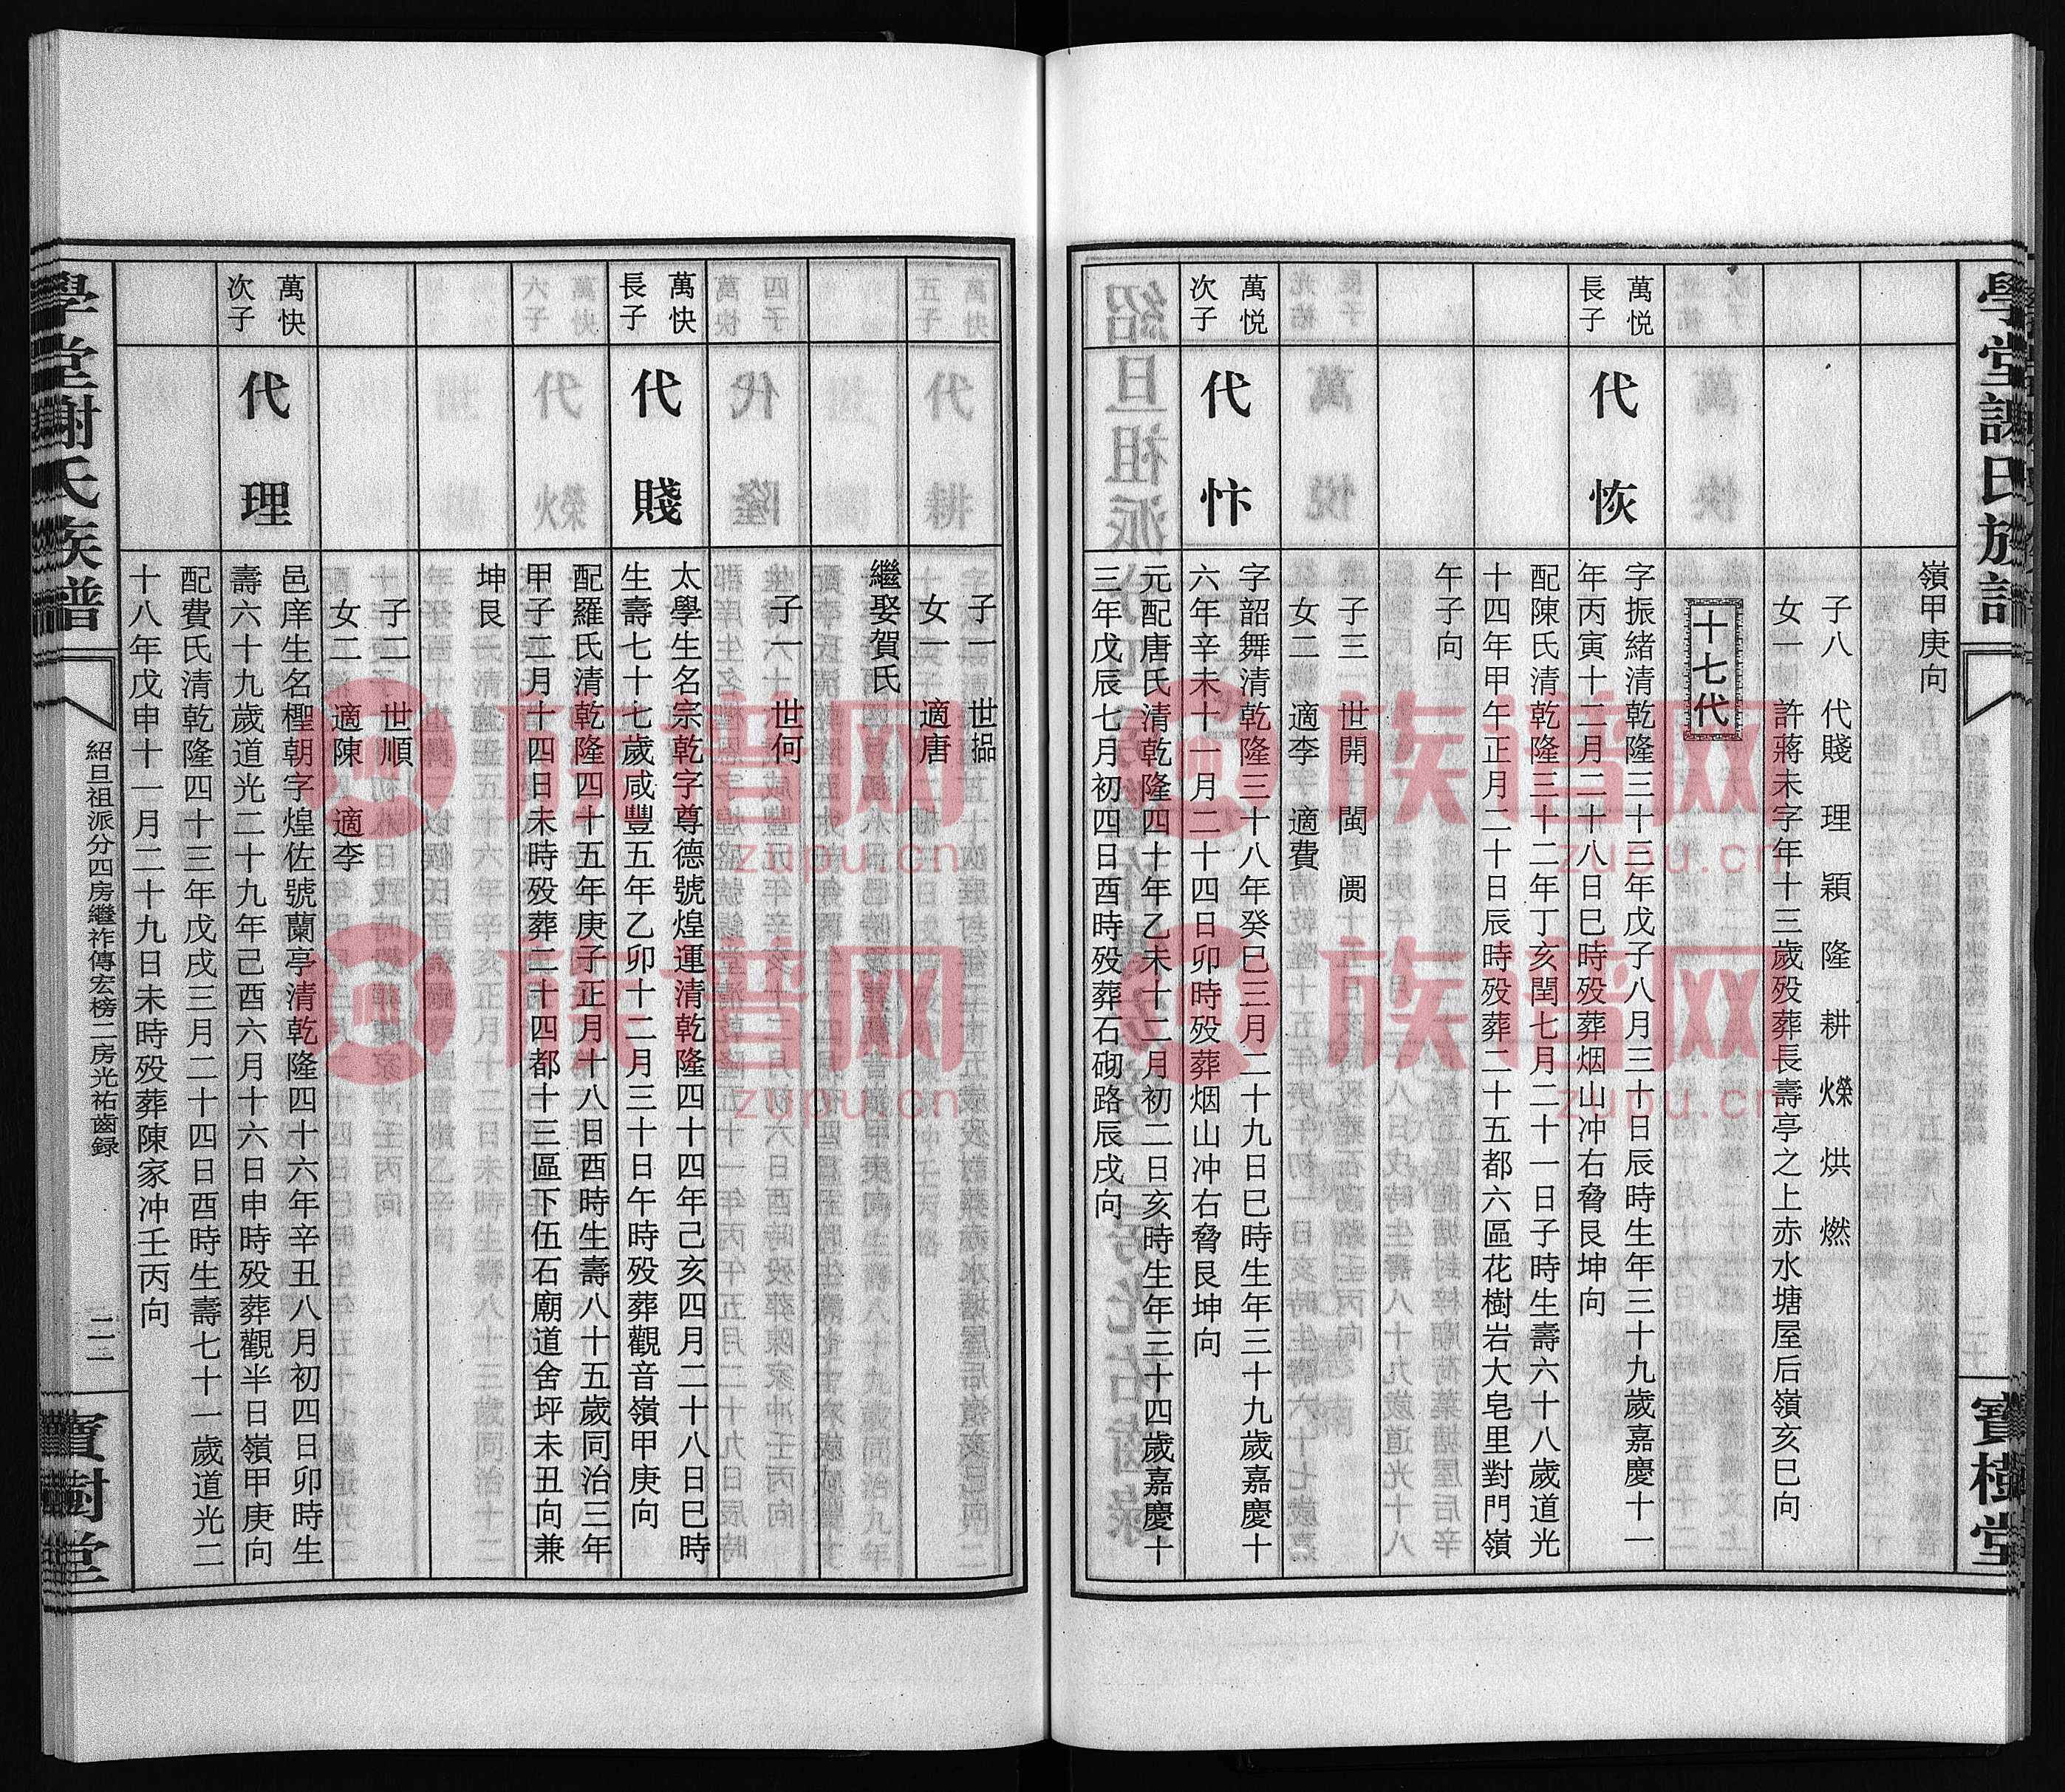 嶺甲庚向
子八 代賤 理 穎 隆 耕 爃 烘 燃
女一 許蔣未字年十三歲歿葬長壽亭之上赤水塘屋后嶺亥巳向
十七代
萬悦
長子
代恢
字振緒清乾隆三十三年戊子八月三十日辰時生年三十九歲嘉慶十一
年丙寅十二月二十八日巳時歿葬烟山冲右脅艮坤向
配陳氏清乾隆三十二年丁亥閏七月二十一日子時生壽六十八歲道光
十四年甲午正月二十日辰時歿葬二十五都六區花樹岩大皂里對門嶺
午子向
子三 世開 閩 阓
女二 適李 適費
萬悦
次子
代忭
字韶舞清乾隆三十八年癸巳三月二十九日巳時生年三十九歲嘉慶十
六年辛未十一月二十四日卯時歿葬烟山冲右脅艮坤向
元配唐氏清乾隆四十年乙未十二月初二日亥時生年三十四歲嘉慶十
三年戊辰七月初四日酉時歿葬石砌路辰戌向
子一 世
女一 適唐
繼娶賀氏
子一 世何
萬快
長子
代賤
太學生名宗乾字尊德號煌運清乾隆四十四年己亥四月二十八日巳時
生壽七十七歲咸豐五年乙卯十二月三十日午時歿葬觀音嶺甲庚向
配羅氏清乾隆四十五年庚子正月十八日酉時生壽八十五歲同治三年
甲子二月十四日未時歿葬二十四都十三區下伍石廟道舍坪未丑向兼
坤艮
子二 世順
女二 適陳 適李
萬快
次子
代理
邑庠生名檉朝字煌佐號蘭亭清乾隆四十六年辛丑八月初四日卯時生
壽六十九歲道光二十九年己酉六月十六日申時歿葬觀半日嶺甲庚向
配費氏清乾隆四十三年戊戌三月二十四日酉時生壽七十一歲道光二
十八年戊申十一月二十九日未時歿葬陳家冲壬丙向
學堂謝氏族譜
紹旦祖派分四房繼祚傳宏榜二房光祐齒録
二一
寶樹堂
族谱网
zupu.cn
族谱网
zupu.cn
族谱网
zupu.cn
族谱网
zupu.cn